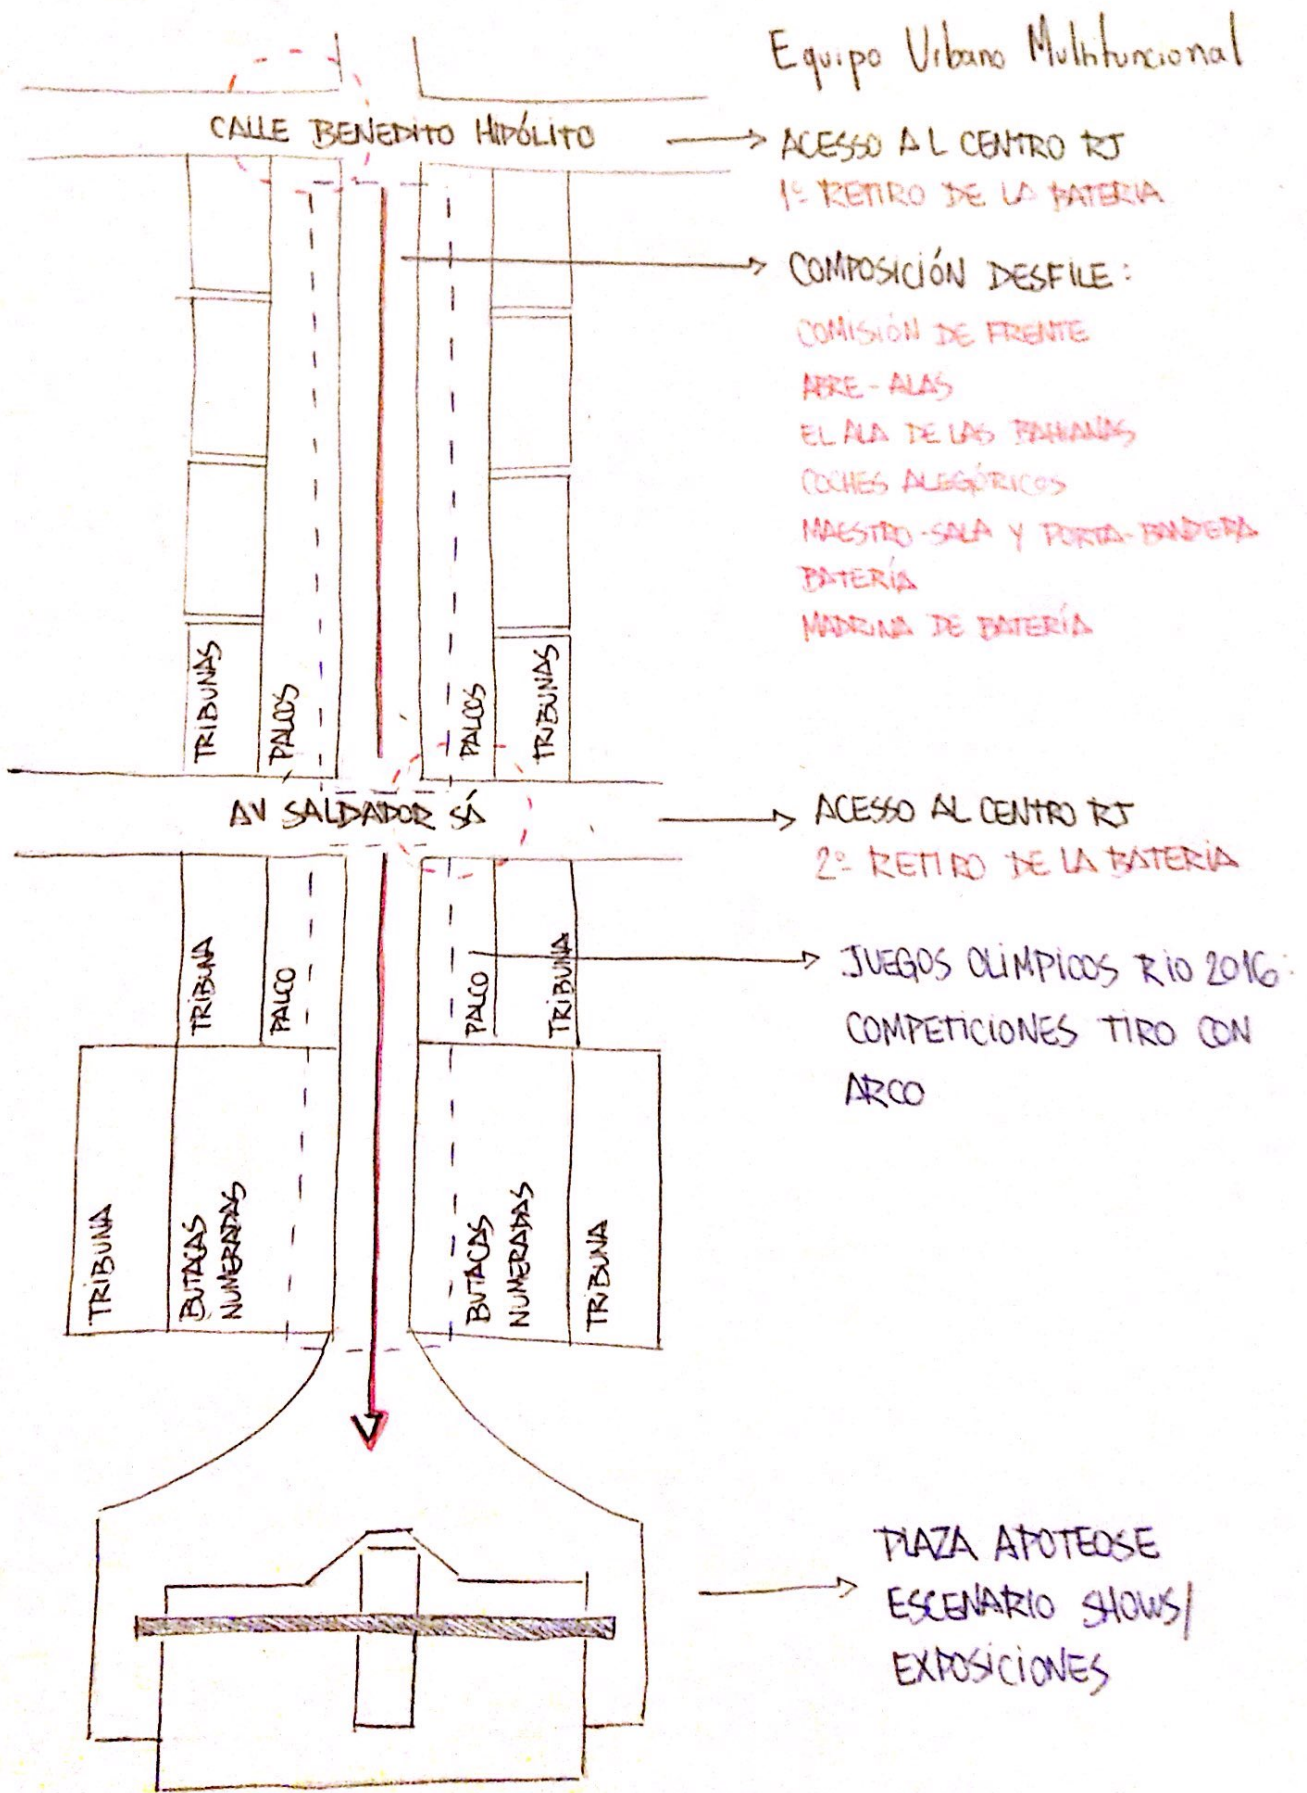 Equipo Urbano Multifuncional
CALLE BENEDITO HIPÓLITO
ACESSO AL CENTRO RJ
1º RETIRO DE LA BATERIA
COMPOSICIÓN DESFILE:
COMISIÓN DE FRENTE
ABRE-ALAS
EL ALA DE LAS BAHIANAS
COCHES ALEGÓRICOS
MAESTRO-SALA Y PORTA-BANDERA
BATERÍA
MADRINA DE BATERÍA
TRIBUNAS
PALCOS
PALCOS
TRIBUNAS
AV SALDADOR SÁ
ACESSO AL CENTRO RJ
2º RETIRO DE LA BATERIA
TRIBUNA
PALCO
PALCO
TRIBUNA
JUEGOS OLIMPICOS RIO 2016:
COMPETICIONES TIRO CON
ARCO
TRIBUNA
BUTACAS
NUMERADAS
BUTACAS
NUMERADAS
TRIBUNA
PLAZA APOTEOSE
ESCENARIO SHOWS/
EXPOSICIONES